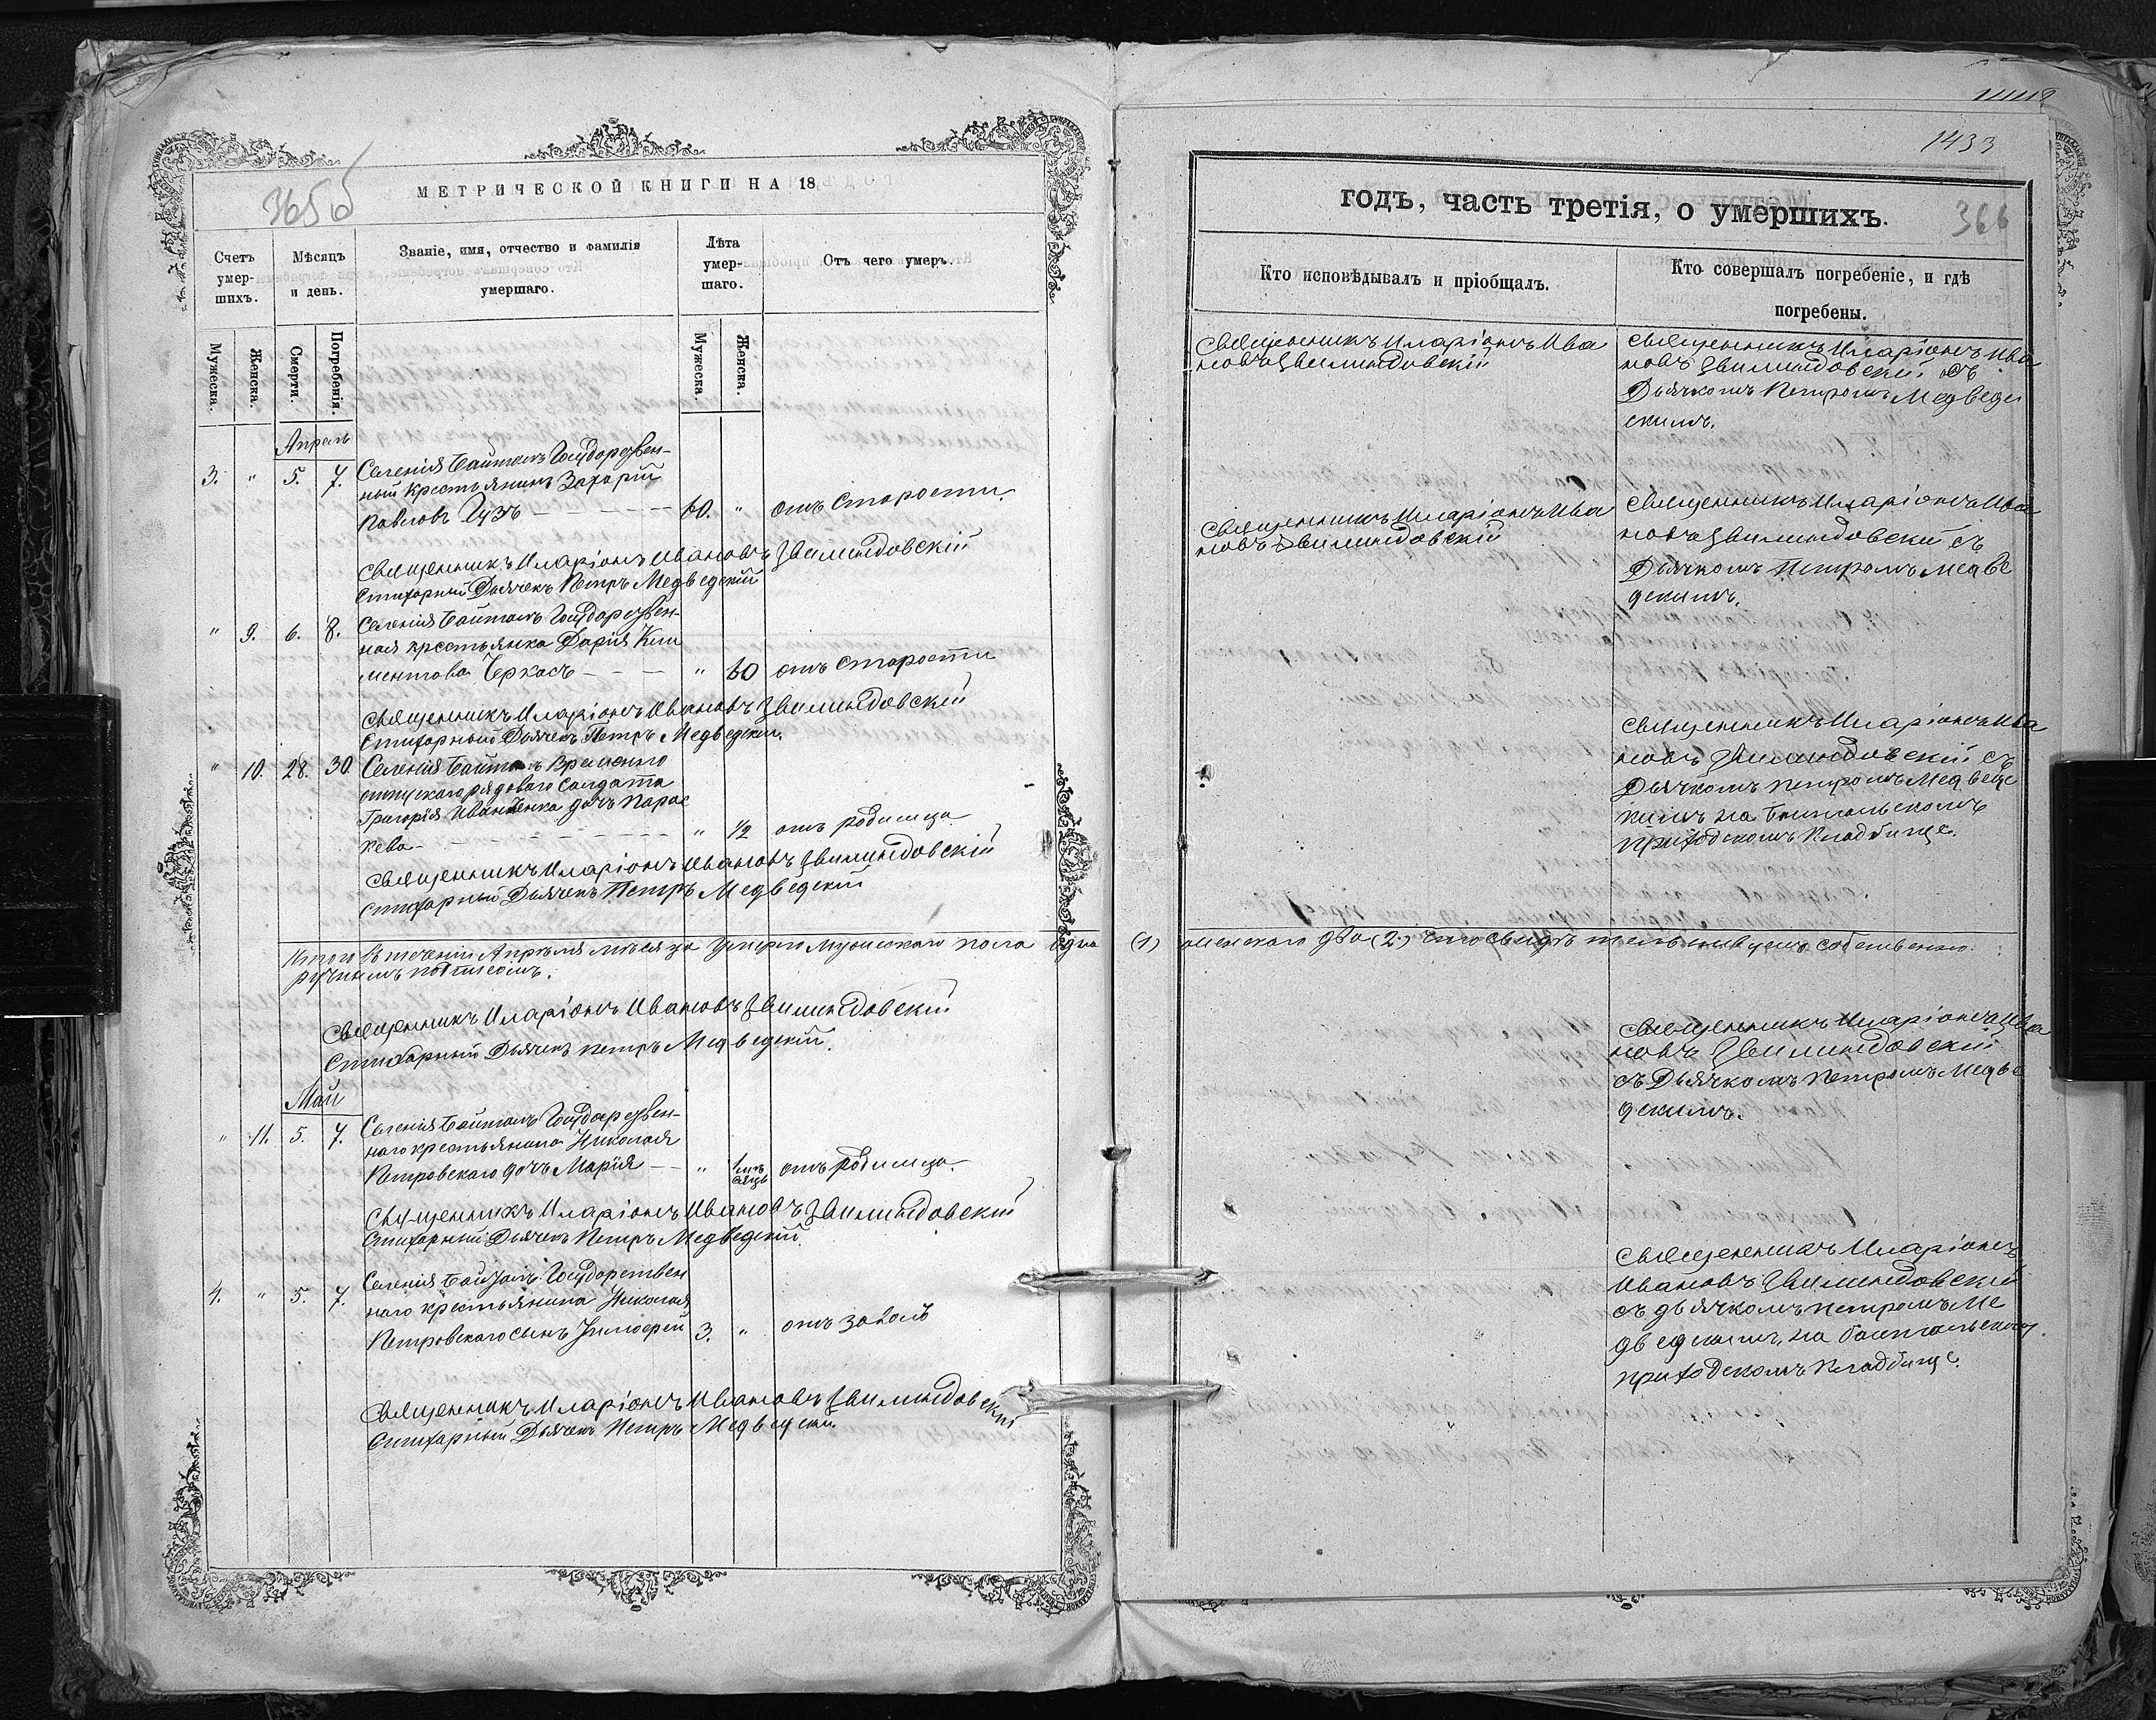 МЕТРИЧЕСКОЙ КНИГИ НА 18
365 б
Счетъ умер-шихъ.
Мѣсяцъ и день.
Званіе, имя, отчество и фамилія умершаго.
Лѣта умер-шаго.
Отъ чего умеръ.
Мужеска.
Женска.
Смерти.
Погребенія.
Мужеска.
Женска.
Апрель
3. " 5. 7. Селенія Байталъ Государствен-
ный крестьянинъ Захарій
Павловъ Гузъ 60. " отъ старости.
Священникъ Иларіонъ Ивановъ Звилиндовскій
Стихарный Дьячекъ Петръ Медведскій
" 9. 6. 8. Селенія Байталъ Государствен-
ная крестьянка Дарія Кли
ментова Черкасъ " 60 отъ старости
Священникъ Иларіонъ Ивановъ Звилиндовскій
Стихарный Дьячекъ Петръ Медведскій.
" 10. 28. 30 Селенія Байталъ Временно
отпускаго рядоваго Солдата
Григорія Иваненка дочь Парас
кева " 1/2 отъ родимца
Священникъ Иларіонъ Ивановъ Звилиндовскій
Стихарный Дьячекъ Петръ Медведскій
Итого въ теченіи Апрѣля мѣсяца умерло Мужескаго пола одна (1) женскаго два (2) что свидѣтельствуемъ собственно.
ручнымъ подписомъ.
Священникъ Иларіонъ Ивановъ Звилиндовскій
Стихарный Дьячекъ Петръ Медведскій.
Май
" 11. 5. 7. Селенія Байталъ Государствен-
наго крестьянина Николая
Петровскаго дочь Марія " 1 мѣ
сяцъ отъ родимца.
Священникъ Иларіонъ Ивановъ Звилиндовскій
Стихарный Дьячекъ Петръ Медведскій.
4. " 5. 7. Селенія Байталъ Государствен
наго крестьянина Николая
Петровскаго сынъ Тимоѳей 3. "
Священникъ Иларіонъ Ивановъ Звилиндовскій
Стихарный Дьячекъ Петръ Медведскій
1433
годъ, часть третія, о умершихъ.
366
Кто исповѣдывалъ и пріобщалъ.
Кто совершалъ погребеніе, и гдѣ
погребены.
Священникъ Иларіонъ Ива
новъ Звилиндовскій
Священникъ Иларіонъ Ива
новъ Звилиндовскій съ
Дьячкомъ Петромъ Медведс
скимъ.
Священникъ Иларіонъ Ива
новъ Звилиндовскій
Священникъ Иларіонъ Ива
новъ Звилиндовскій съ
Дьячкомъ Петромъ Медве
дскимъ.
Священникъ Иларіонъ Ива
новъ Звилиндовскій съ
Дьячкомъ Петромъ Медведс
кимъ на Байтальскомъ
приходскомъ кладбище.
Священникъ Иларіонъ Ива
новъ Звилиндовскій
съ Дьячкомъ Петромъ Медве
дскимъ.
Священникъ Иларіонъ
Ивановъ Звилиндовскій
съ дьячкомъ Петромъ Ме
дведскимъ, на Байтальскомъ
приходскомъ кладбище.